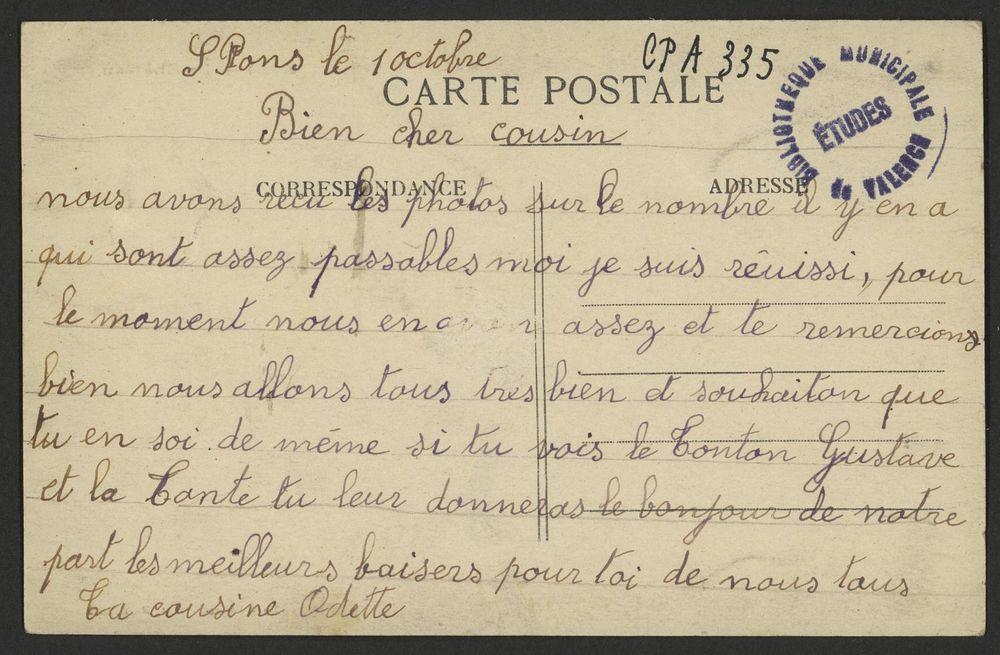 S Pons le 1 octobre
CPA 335
CARTE POSTALE
BIBLIOTHEQUE MUNICIPALE de VALENCE
ÉTUDES
Bien cher cousin
CORRESPONDANCE
ADRESSE
nous avons recu les photos sur le nombre il y en a
qui sont assez passables moi je suis réuissi, pour
le moment nous en avon assez et te remercions
bien nous allons tous tres bien et souhaiton que
tu en soi de même si tu vois le Tonton Gustave
et la Tante tu leur donneras le bonjour de notre
part les meilleurs baisers pour toi de nous tous
Ta cousine Odette